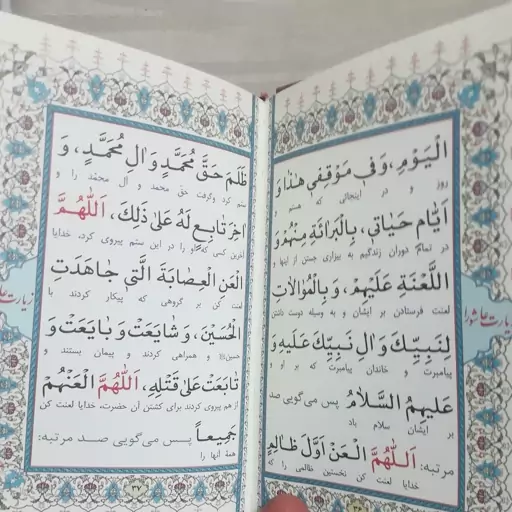 الْيَوْمِ، وَفي مَوْقِفي هٰذا وَ
روز و در اینجائی که هستم و
اَيّامِ حَياتي، بِالْبَرائَةِ مِنْهُمْ وَ
در تمام دوران زندگیم به بیزاری جستن از اینها و
اللَّعْنَةِ عَلَيْهِمْ، وَبِالْمُوالاتِ
لعنت فرستادن بر ایشان و به وسیله دوست داشتن
لِنَبِيِّكَ وَالِ نَبِيِّكَ عَلَيْهِ وَ
پیامبرت و خاندان پیامبرت که بر او و
عَلَيْهِمُ السَّلامُ پس می‌گویی صد
بر ایشان سلام باد
مرتبه: اَللّٰهُمَّ الْعَنْ اَوَّلَ ظالِمٍ
خدایا لعنت کن نخستین ظالمی را که
زیارت عاشورا
ظَلَمَ حَقَّ مُحَمَّدٍ وَالِ مُحَمَّدٍ، وَ
ستم کرد وگرفت حق محمد و آل محمد را و
اخِرَ تابِعٍ لَهُ عَلىٰ ذٰلِكَ، اَللّٰهُمَّ
آخرین کسی که او را در این ستم پیروی کرد، خدایا
الْعَنِ الْعِصابَةَ الَّتي جاهَدَتِ
لعنت کن بر گروهی که پیکار کردند با
الْحُسَيْنَ، وَشايَعَتْ وَبايَعَتْ وَ
حسین و همراهی کردند و پیمان بستند و
تابَعَتْ عَلىٰ قَتْلِهِ، اَللّٰهُمَّ الْعَنْهُمْ
از هم پیروی کردند برای کشتن آن حضرت، خدایا لعنت کن
جَميعاً پس می‌گویی صد مرتبه:
همهٔ آنها را
زیارت
۳۷